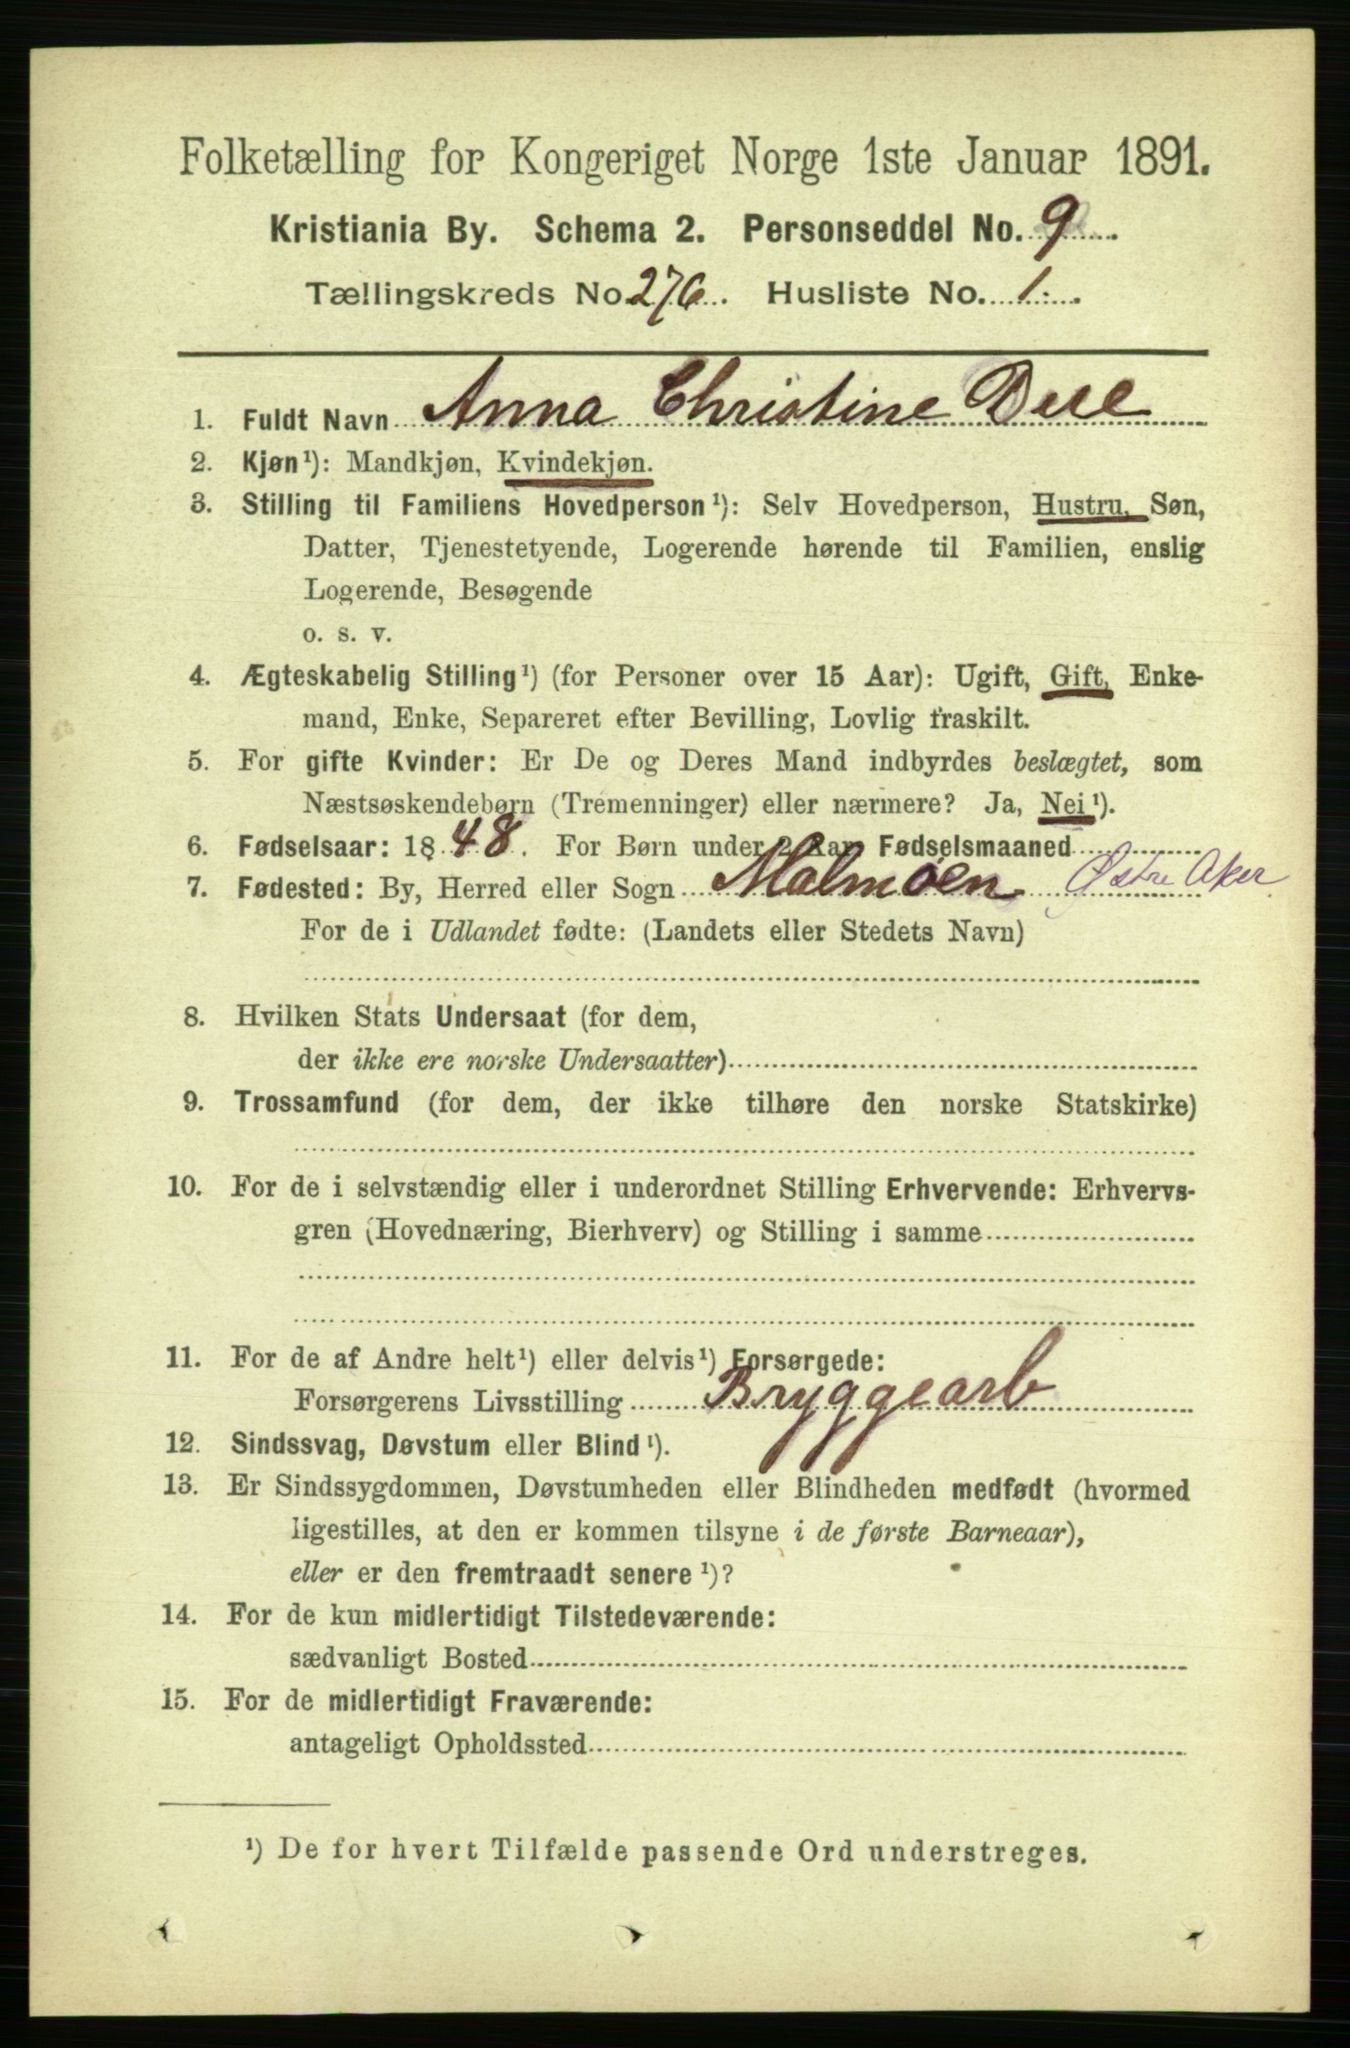 Folketælling for Kongeriget Norge 1ste Januar 1891.
Kristiania By. Schema 2. Personseddel No. 9
Tællingskreds No. 276. Husliste No. 1.
1. Fuldt Navn Anna Christine
2. Kjøn¹): Mandkjøn, Kvindekjøn.
3. Stilling til Familiens Hovedperson¹): Selv Hovedperson, Hustru, Søn,
Datter, Tjenestetyende, Logerende hørende til Familien, enslig
Logerende, Besøgende
o. s. v.
4. Ægteskabelig Stilling¹) (for Personer over 15 Aar): Ugift, Gift, Enke-
mand, Enke, Separeret efter Bevilling, Lovlig fraskilt.
5. For gifte Kvinder: Er De og Deres Mand indbyrdes beslægtet, som
Næstsøskendebørn (Tremenninger) eller nærmere? Ja, Nei¹).
6. Fødselsaar: 1848. For Børn under 2 Aar Fødselsmaaned
7. Fødested: By, Herred eller Sogn Malmøen Østre Aker
For de i Udlandet fødte: (Landets eller Stedets Navn)
8. Hvilken Stats Undersaat (for dem,
der ikke ere norske Undersaatter)
9. Trossamfund (for dem, der ikke tilhøre den norske Statskirke)
10. For de i selvstændig eller i underordnet Stilling Erhvervende: Erhvervs-
gren (Hovednæring, Bierhverv) og Stilling i samme
11. For de af Andre helt¹) eller delvis¹) Forsørgede:
Forsørgerens Livsstilling Bryggearb
12. Sindssvag, Døvstum eller Blind¹).
13. Er Sindssygdommen, Døvstumheden eller Blindheden medfødt (hvormed
ligestilles, at den er kommen tilsyne i de første Barneaar),
eller er den fremtraadt senere¹)?
14. For de kun midlertidigt Tilstedeværende:
sædvanligt Bosted
15. For de midlertidigt Fraværende:
antageligt Opholdssted
¹) De for hvert Tilfælde passende Ord understreges.